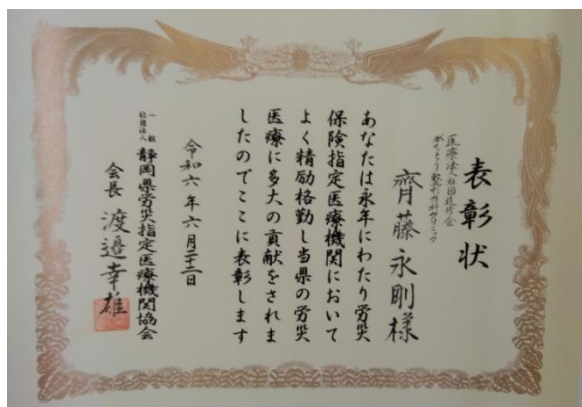 表彰状
医療法人社団進修会
がくとう整形外科クリニック
齊藤永剛様
あなたは永年にわたり労災
保険指定医療機関において
よく精励格勤し当県の労災
医療に多大の貢献をされま
したのでここに表彰します
令和六年六月二十二日
一般
社団法人
静岡県労災指定医療機関協会
会長 渡邉幸雄